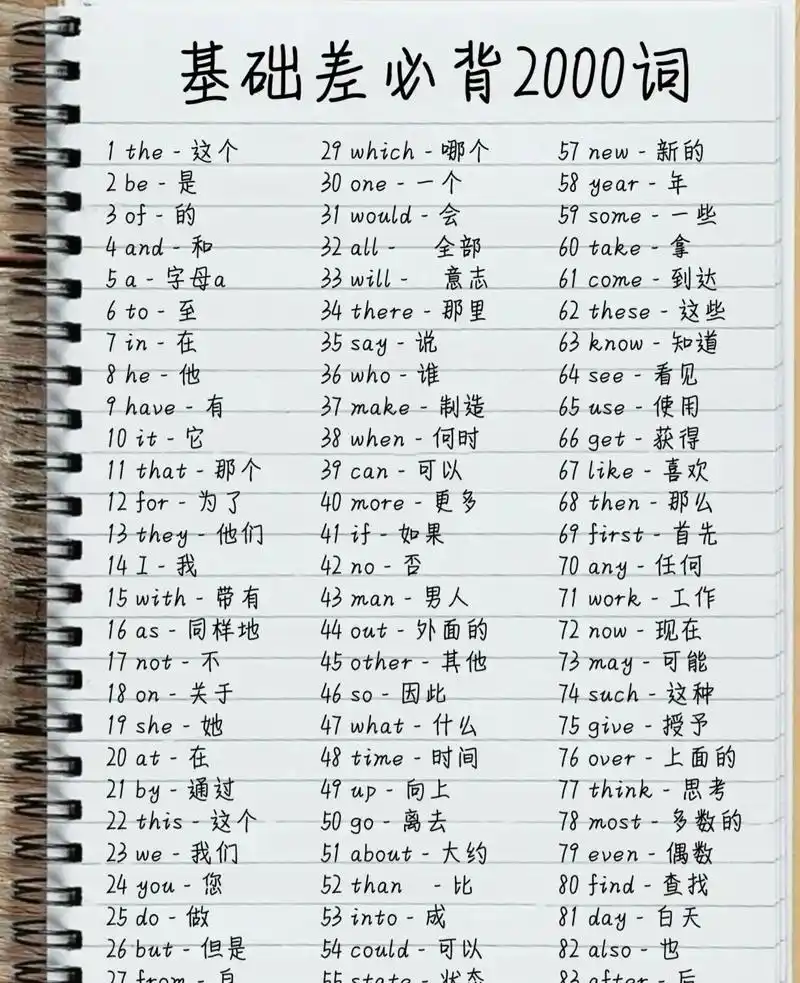 基础差必背2000词
1 the - 这个
2 be - 是
3 of - 的
4 and - 和
5 a - 字母a
6 to - 至
7 in - 在
8 he - 他
9 have - 有
10 it - 它
11 that - 那个
12 for - 为了
13 they - 他们
14 I - 我
15 with - 带有
16 as - 同样地
17 not - 不
18 on - 关于
19 she - 她
20 at - 在
21 by - 通过
22 this - 这个
23 we - 我们
24 you - 您
25 do - 做
26 but - 但是
27 from - 自
29 which - 哪个
30 one - 一个
31 would - 会
32 all - 全部
33 will - 意志
34 there - 那里
35 say - 说
36 who - 谁
37 make - 制造
38 when - 何时
39 can - 可以
40 more - 更多
41 if - 如果
42 no - 否
43 man - 男人
44 out - 外面的
45 other - 其他
46 so - 因此
47 what - 什么
48 time - 时间
49 up - 向上
50 go - 离去
51 about - 大约
52 than - 比
53 into - 成
54 could - 可以
55 state - 状态
57 new - 新的
58 year - 年
59 some - 一些
60 take - 拿
61 come - 到达
62 these - 这些
63 know - 知道
64 see - 看见
65 use - 使用
66 get - 获得
67 like - 喜欢
68 then - 那么
69 first - 首先
70 any - 任何
71 work - 工作
72 now - 现在
73 may - 可能
74 such - 这种
75 give - 授予
76 over - 上面的
77 think - 思考
78 most - 多数的
79 even - 偶数
80 find - 查找
81 day - 白天
82 also - 也
83 after - 后